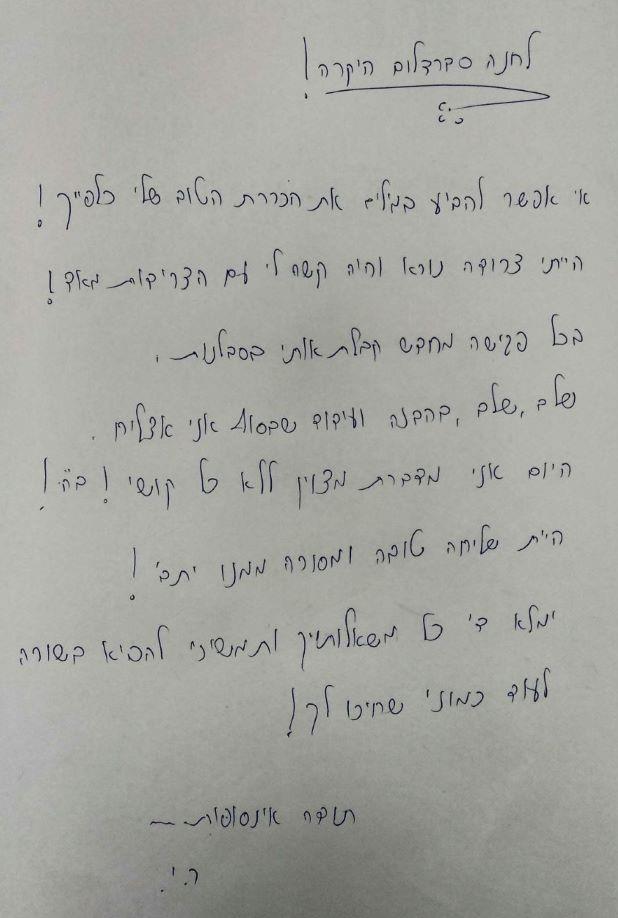 לחנה סברדלוב היקרה!
אי אפשר להביע במילים את הכרת הטוב שלי כלפייך!
הייתי צרודה נורא והיה קשה לי עם הצרידות מאד!
בכל פגישה מחדש קבלת אותי בסבלנות,
שלב, שלב, בהבנה ועידוד שבסוף אני אצליח.
היום אני מדברת מצוין ללא כל קושי! ב"ה!
היית שליחה טובה ומסורה ממנו יתב'!
ימלא ד' כל משאלותיך ותמשיכי להביא בשורה
לעוד כמוני שחיכו לך!
תודה אינסופית ~
ה.י.